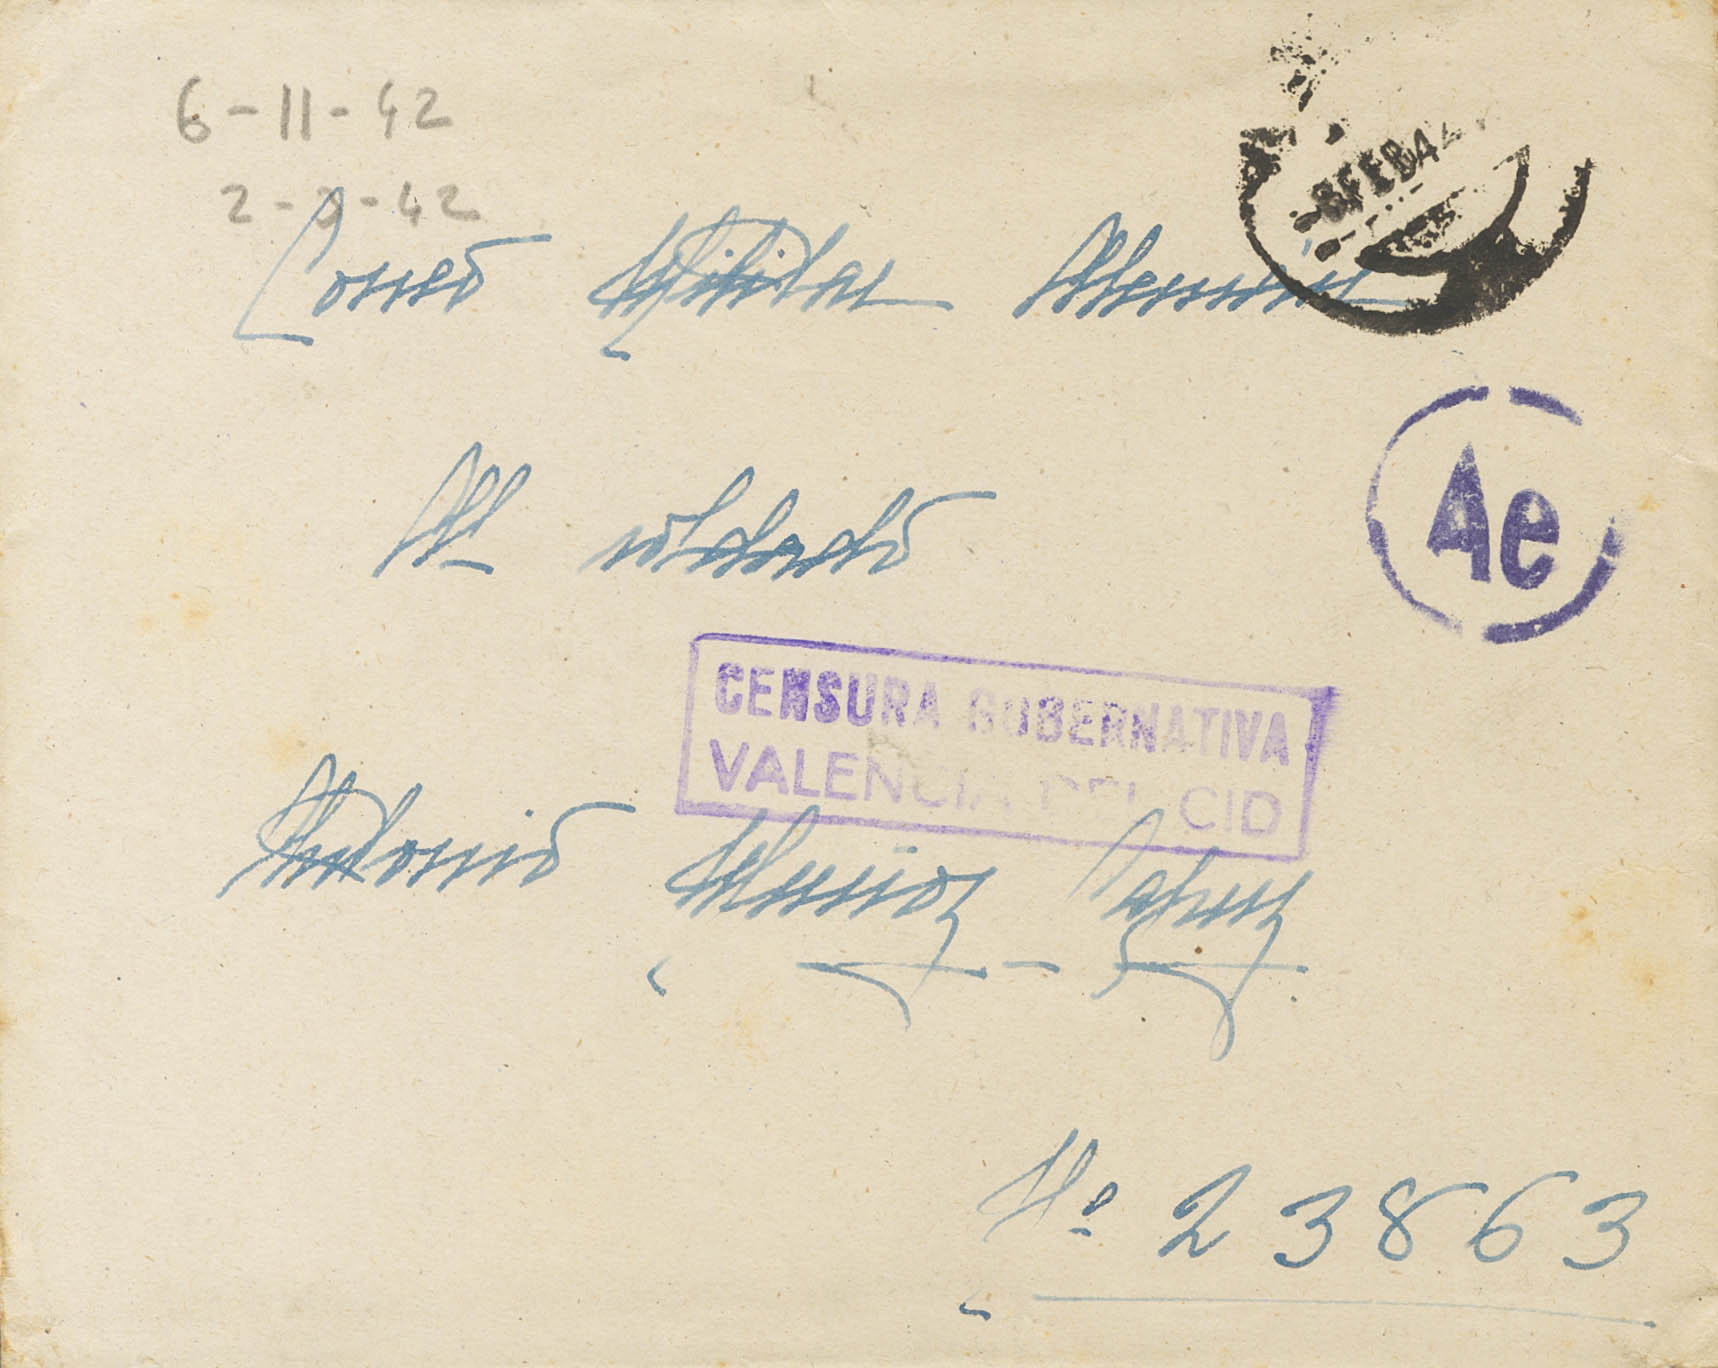 6-11-42
2-2-42
-8 FEB 42
Correo Militar Alemán
Ae
Al soldado
CENSURA GUBERNATIVA
VALENCIA DEL CID
Antonio Muñoz
Nº 23863